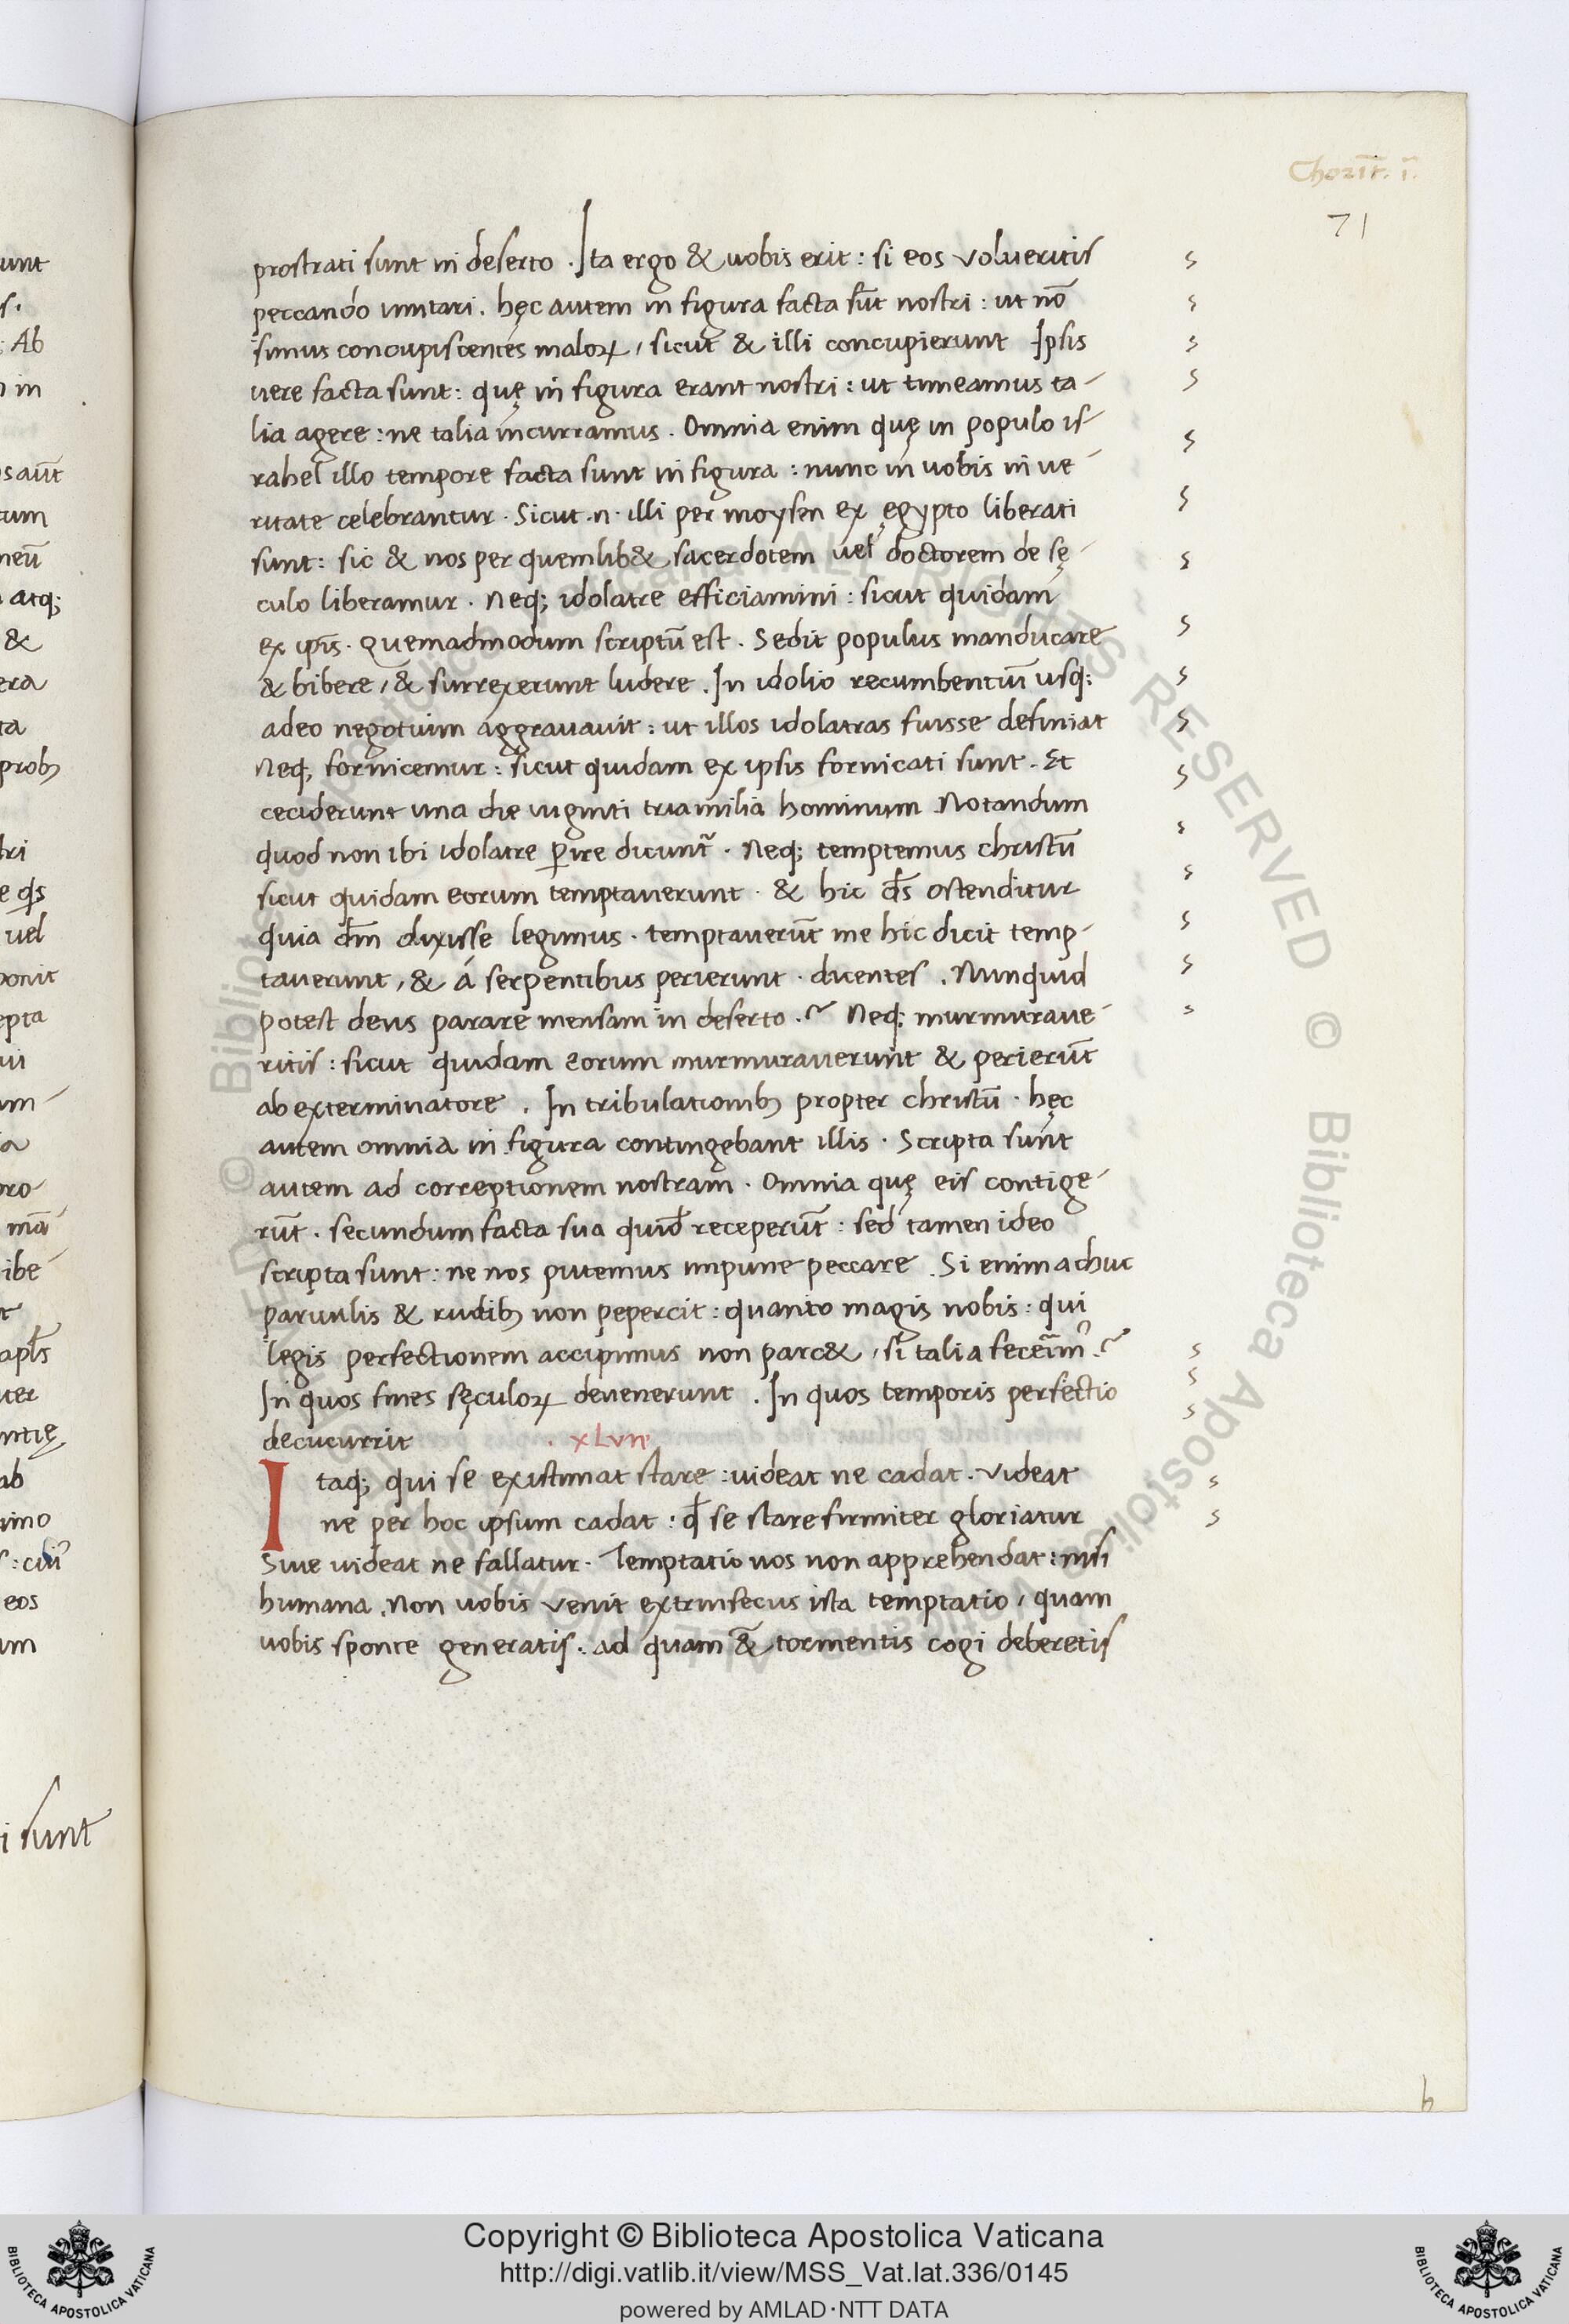 Chorīt. ī.
71
prostrati sunt in deserto . Ita ergo & uobis erit : si eos volueritis
peccando imitari . hęc autem in figura facta sūt nostri : ut nō
simus concupiscentes maloꝝ, sicut & illi concupierunt Ipsis
uere facta sunt : quę in figura erant nostri : ut timeamus ta-
lia agere : ne talia incurramus . Omnia enim quę in populo is-
rahel illo tempore facta sunt in figura : nunc in uobis in ue-
ritate celebrantur . Sicut .n. illi per moysen ex ęgypto liberati
sunt : sic & nos per quemlib& sacerdotem uel doctorem de sę-
culo liberamur . Neq; idolatre efficiamini : sicut quidam
ex ip̄is . Quemadmodum scriptū est . Sedit populus manducare
& bibere, & surrexerunt ludere . In idolio recumbentiū usq;
adeo negotium aggrauauit : ut illos idolatras fuisse definiat
Neq; fornicemur : sicut quidam ex ipsis fornicati sunt . Et
ceciderunt una die uiginti tria milia hominum Notandum
quod non ibi idolatre ꝑire dicunt̃ . Neq; temptemus christū
sicut quidam eorum temptauerunt . & hic d̄s ostenditur
quia d̄m dixisse legimus . temptauerūt me hic dicit temp-
tauerunt, & á serpentibus perierunt . dicentes . Nunquid
potest deus parare mensam in deserto .? Neq; murmuraue-
ritis : sicut quidam eorum murmurauerunt & perierūt
ab exterminatore . In tribulationibꝫ propter christū . hęc
autem omnia in figura contingebant illis . Scripta sunt
autem ad correptionem nostram . Omnia quę eis contige-
rūt . secundum facta sua quid̄ receperūt : sed tamen ideo
scripta sunt : ne nos putemus impune peccare . Si enim adhuc
paruulis & rudibꝫ non pepercit : quanto magis nobis : qui
legis perfectionem accipimus non parc&, si talia fecerīmꝰ .?
In quos fines sęculoꝝ deuenerunt . In quos temporis perfectio
decucurrit . xLvii
Itaq; qui se existimat stare : uideat ne cadat . Videat
ne per hoc ipsum cadat : qd̄ se stare firmiter gloriatur
Siue uideat ne fallatur . Temptatio uos non apprehendat : nisi
humana . Non uobis venit extrinsecus ista temptatio, quam
uobis sponte generatis . ad quam &̄ tormentis cogi deberetis
unt
s.
: Ab
in
s aūt
tum
neū
atq;
&
era
ta
probꝫ
e qs
uel
ponit
epta
ui
um-
ia
pro-
mā-
ibe-
apl̄s
ter
ntię
ab
imo
eos
um
i sunt
h
© Biblioteca Apostolica Vaticana ALL RIGHTS RESERVED © Biblioteca Apostolica Vaticana ALL RIGHTS RESERVED
Copyright © Biblioteca Apostolica Vaticana
http://digi.vatlib.it/view/MSS_Vat.lat.336/0145
powered by AMLAD·NTT DATA
BIBLIOTECA APOSTOLICA VATICANA
BIBLIOTECA APOSTOLICA VATICANA